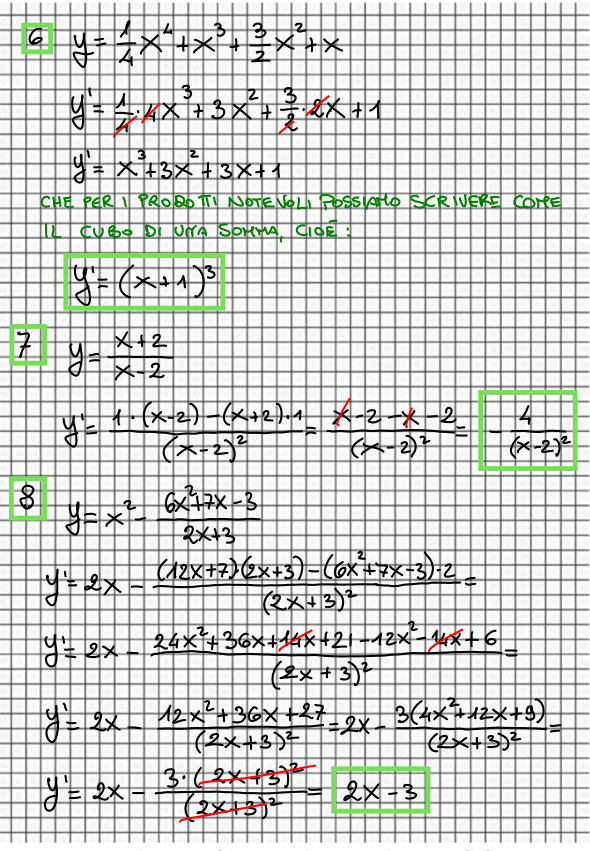 6 y = 1/4 x⁴ + x³ + 3/2 x² + x
y' = 1/4 · 4x³ + 3x² + 3/2 · 2x + 1
y' = x³ + 3x² + 3x + 1
CHE PER I PRODOTTI NOTEVOLI POSSIAMO SCRIVERE COME
IL CUBO DI UNA SOMMA, CIOÈ:
y' = (x+1)³
7 y = (x+2)/(x-2)
y' = (1·(x-2) - (x+2)·1)/(x-2)² = (x-2-x-2)/(x-2)² = - 4/(x-2)²
8 y = x² - (6x²+7x-3)/(2x+3)
y' = 2x - ((12x+7)·(2x+3) - (6x²+7x-3)·2)/(2x+3)² =
y' = 2x - (24x²+36x+14x+21-12x²-14x+6)/(2x+3)² =
y' = 2x - (12x²+36x+27)/(2x+3)² = 2x - 3(4x²+12x+9)/(2x+3)² =
y' = 2x - 3·(2x+3)²/(2x+3)² = 2x-3